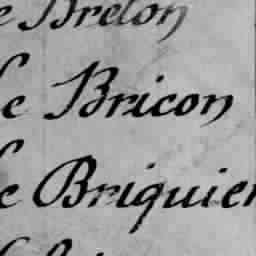 e Breton
Le Bricon
Le Briquier